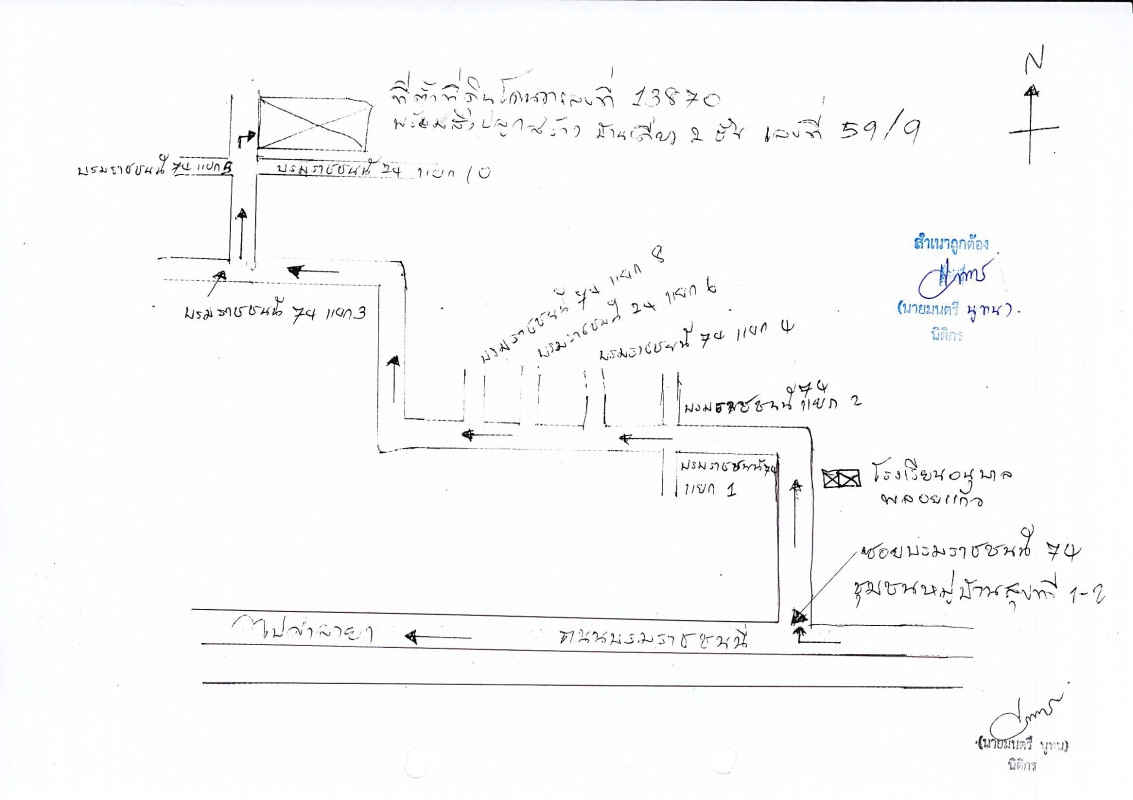 N
ที่ตั้งที่ดินโฉนดเลขที่ 13870
พร้อมสิ่งปลูกสร้าง บ้านเดี่ยว 2 ชั้น เลขที่ 59/9
บรมราชชนนี 74 แยก 5
บรมราชชนนี 74 แยก 10
สำเนาถูกต้อง
(นายมนตรี นูทน)
นิติกร
บรมราชชนนี 74 แยก 3
บรมราชชนนี 74 แยก 8
บรมราชชนนี 74 แยก 6
บรมราชชนนี 74 แยก 4
บรมราชชนนี 74 แยก 2
บรมราชชนนี 74
แยก 1
โรงเรียนอนุบาล
พลอยแก้ว
ซอยบรมราชชนนี 74
ชุมชนหมู่บ้านสุขที่ 1-2
ไปศาลายา
ถนนบรมราชชนนี
(นายมนตรี นูทน)
นิติกร